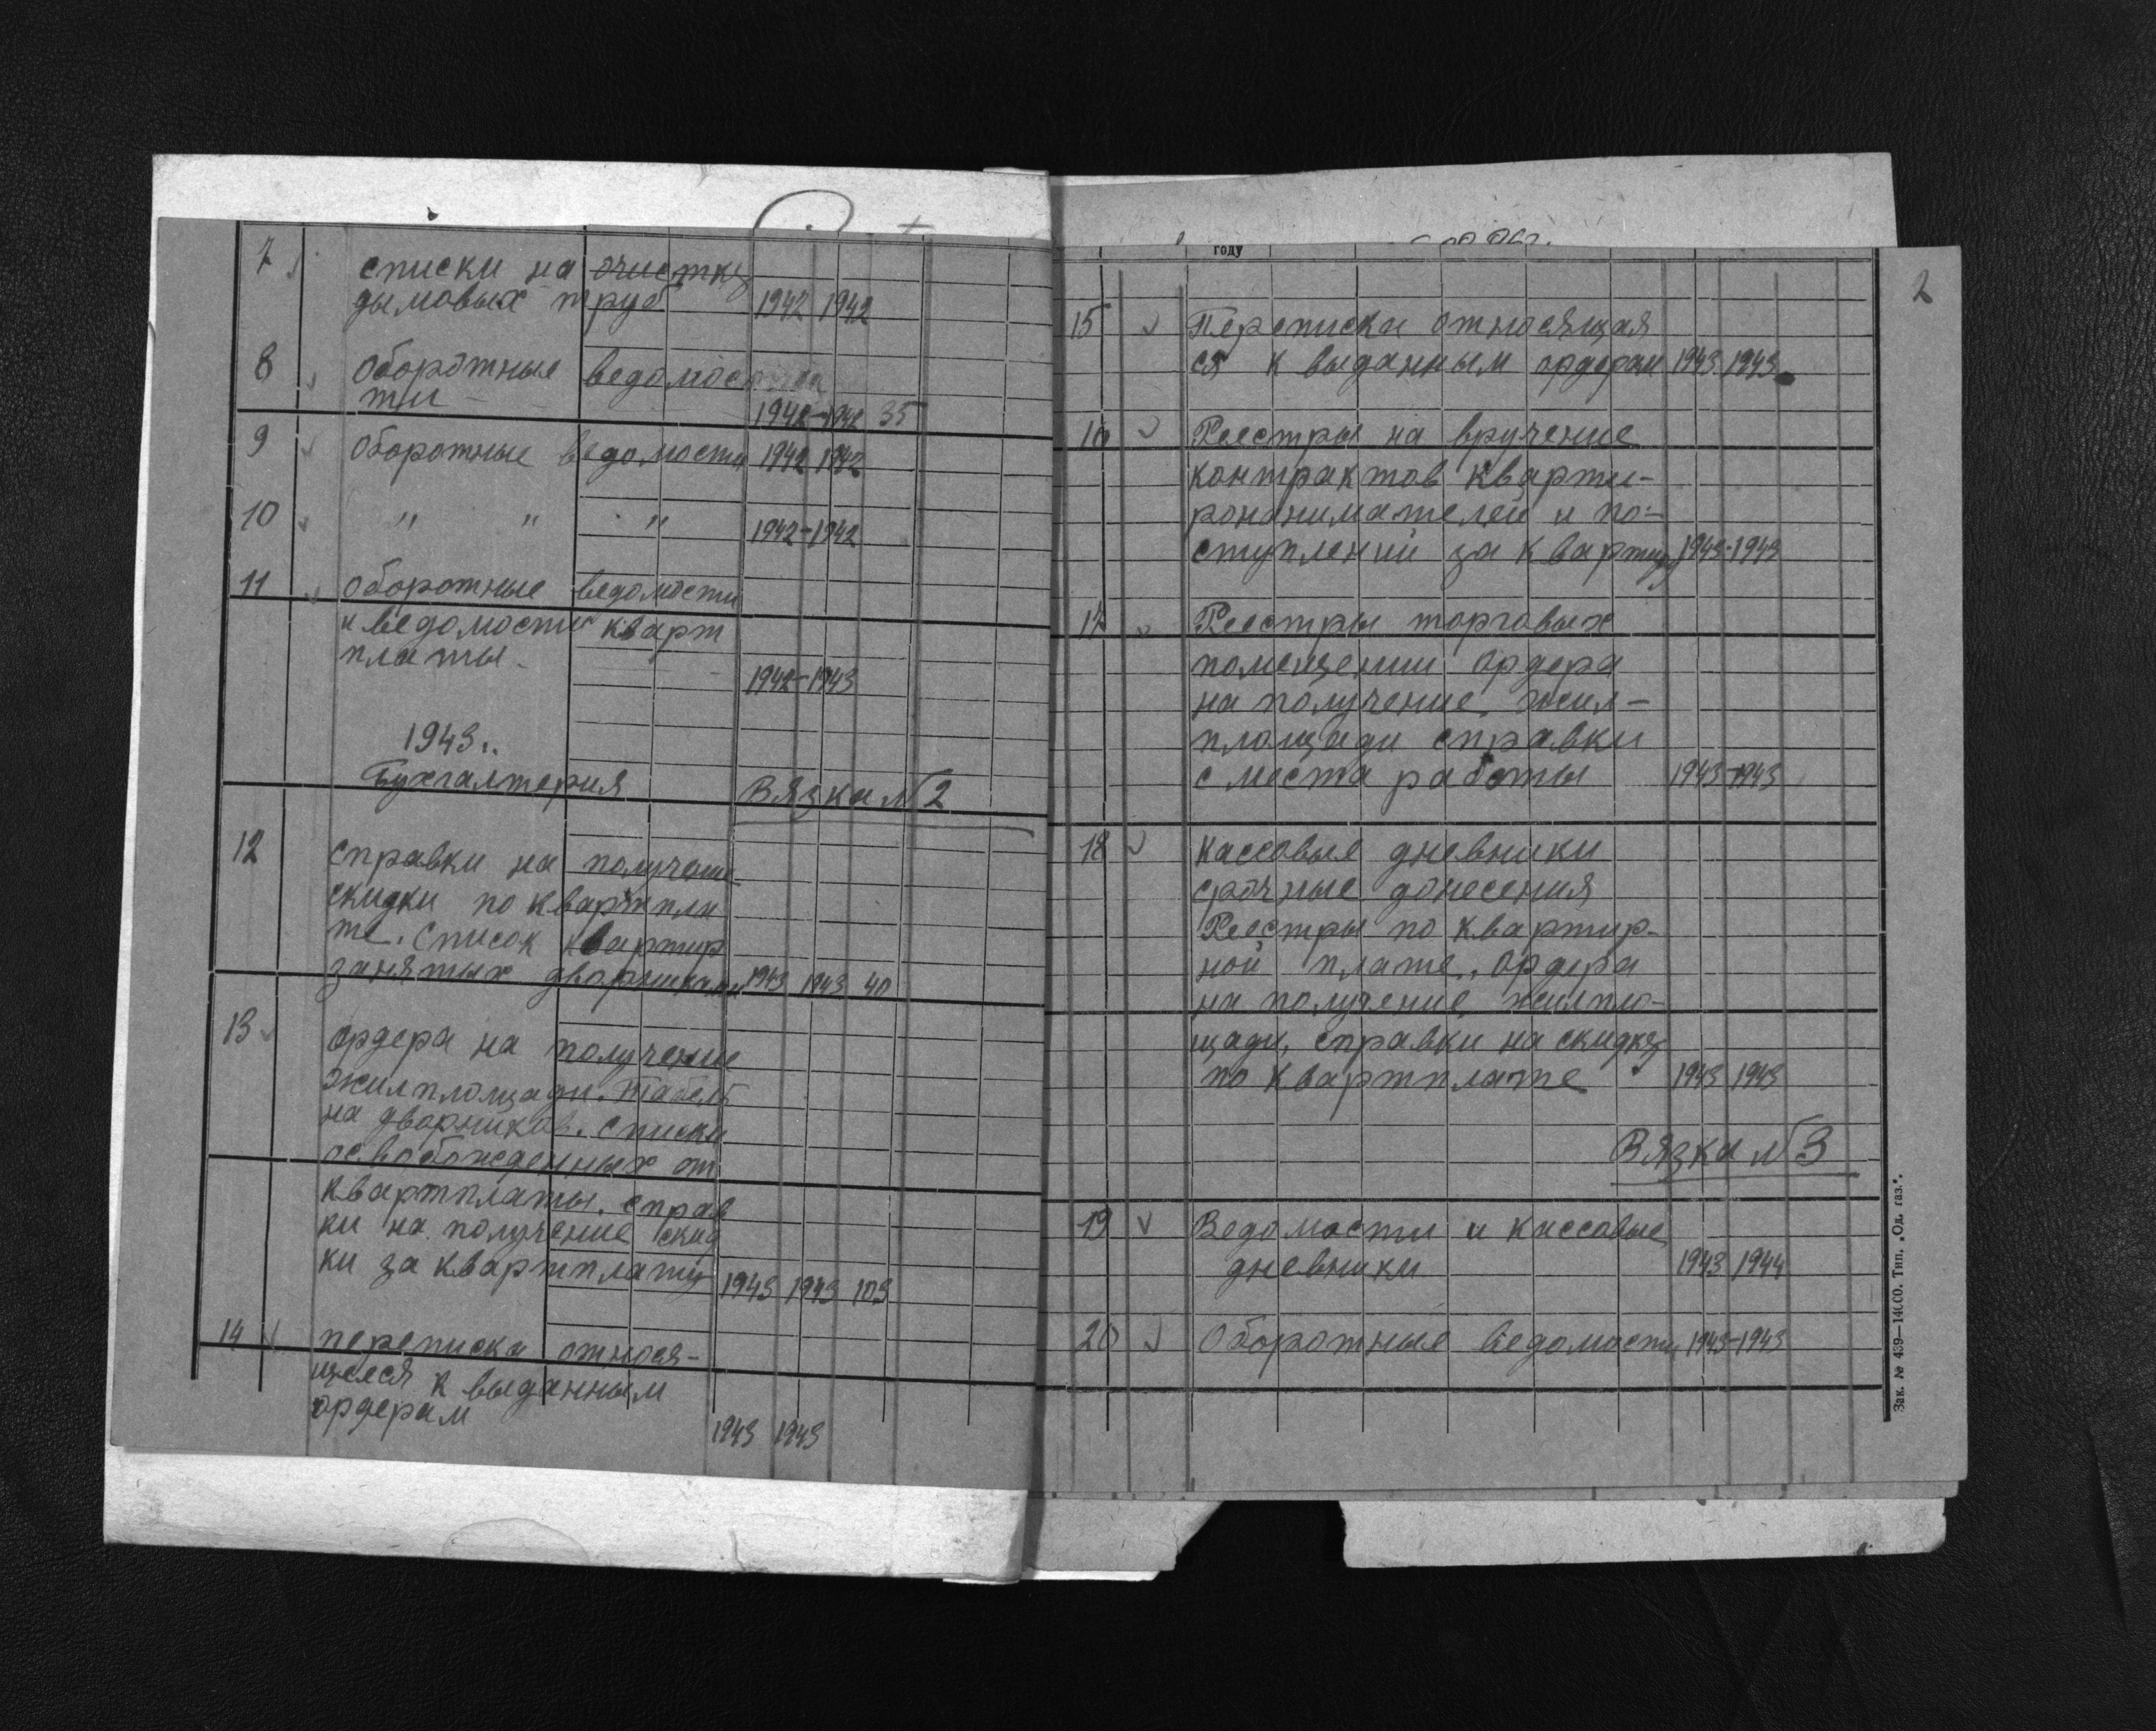 7 списки на очистку
дымовых труб 1942 1942
8 Оборотные ведомос
ти - 1942-1942 35
9 Оборотные ведомости 1942 1942
10 " " " 1942-1942
11 оборотные ведомости
и ведомости кварт
платы. 1942-1943
1943г.
Бухгалтерия Вязка №2
12 справки на получение
скидки по квартпла
те. Список квартир
занятых дворниками 1943 1943 40
13 ордера на получение
жилплощади. табель
на дворников. списки
освобожденных от
квартплаты. справ
ки на получение скид
ки за квартплату 1943 1943 103
14 переписка относя-
щееся к выданным
ордерам 1943 1943
году
2
15 Переписка относящая
ся к выданным ордерам 1943 1943
16 Реестры на вручение
контрактов кварти-
ронанимателей и по-
ступлений за квартиру 1943-1943
17 Реестры торговых
помещении ордера
на получение жил-
площади справки
с места работы 1943-1943
18 Кассовые дневники
срочные донесения
Реестры по квартир-
ной плате. ордера
на получение жилпло-
щади, справки на скидку
по квартплате 1943 1943
Вязка №3
19 Ведомости и кассовые
дневники 1943 1944
20 Оборотные ведомости 1943-1943
Зак. № 439—14000. Тип. „Од. газ.".